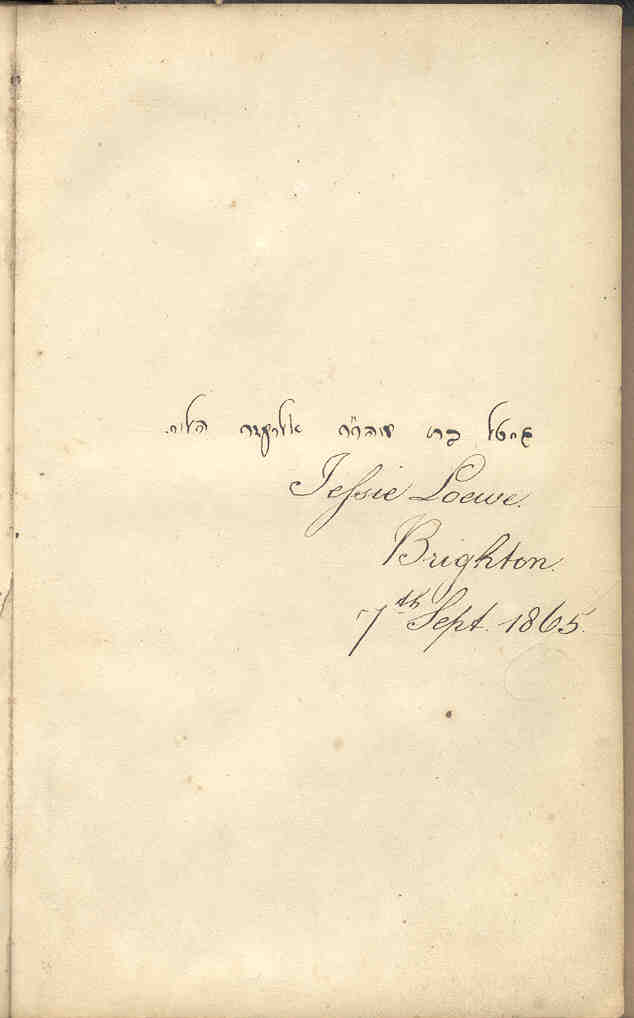 גיטל בת אליעזר הלוי.
Jessie Loewe.
Brighton.
7th Sept. 1865.